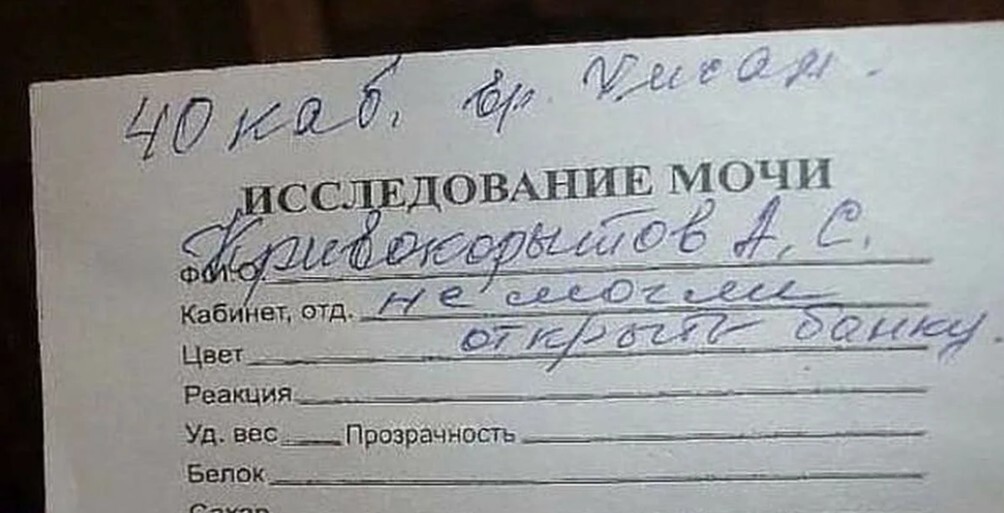 40 каб. вр.
ИССЛЕДОВАНИЕ МОЧИ
Ф.И.О. Кривокорытов А. С.
Кабинет, отд. не могли
открыть банку.
Цвет
Реакция
Уд. вес Прозрачность
Белок
Сахар